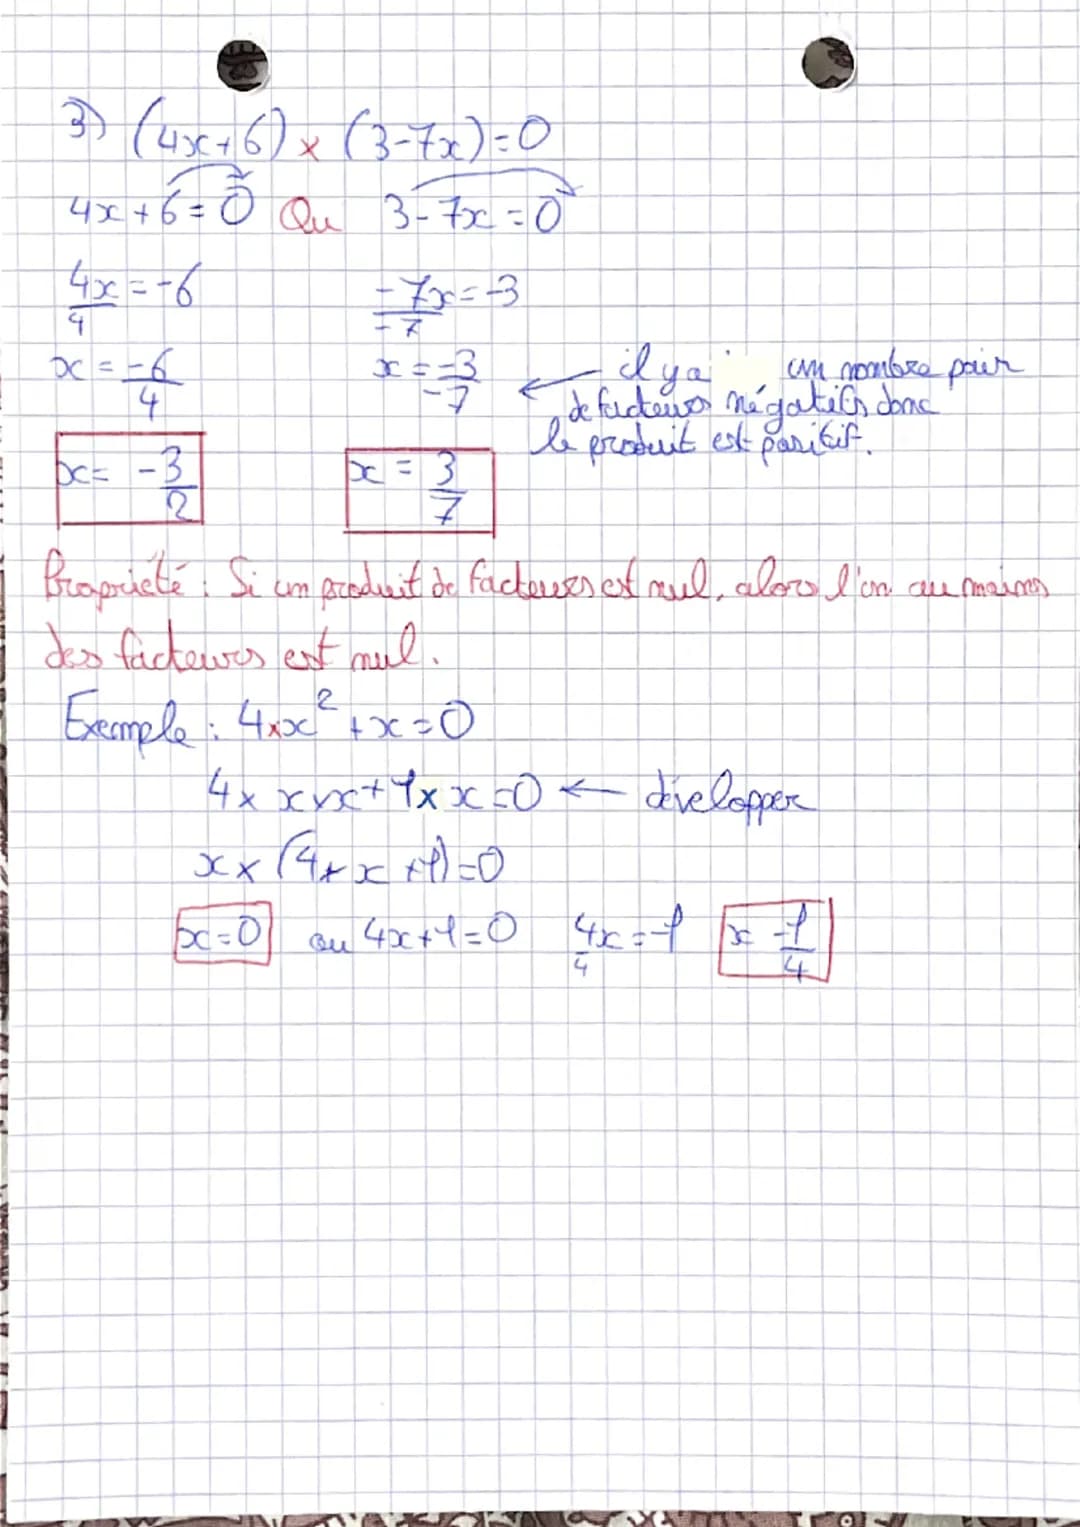 3) (4x+6) × (3-7x)=0
4x+6=0 Ou 3-7x=0
4x/4=-6 -7x/-7=-3
x=-6/4 x=-3/-7 ← il y a un nombre pair
de facteurs négatifs donc
le produit est positif.
x= -3/2 x=3/7
Propriété : Si un produit de facteurs est nul, alors l'un au moins
des facteurs est nul.
Exemple : 4×x²+x=0
4×x×x+1×x=0 ← développer
x×(4×x+1)=0
x=0 ou 4x+1=0 4x/4=-1 x -1/4